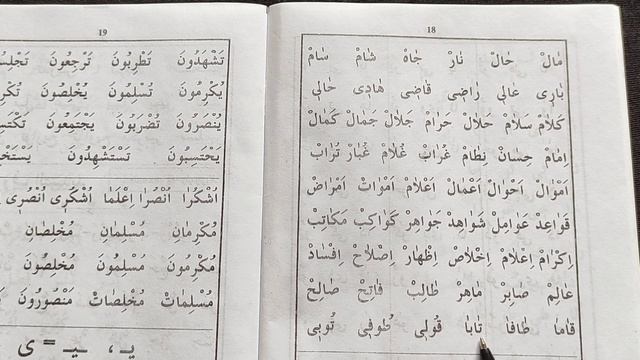 18
مَالْ حَالْ نَارْ جَاهْ شَامْ سَامْ
بَارِى عَالِى رَاضِى قَاضِى هَادِى خَالِى
كَلَامْ سَلَامْ حَلَالْ حَرَامْ جَلَالْ جَمَالْ كَمَالْ
اِمَامْ حِسَانْ نِظَامْ غُرَابْ غُلَامْ غُبَارْ تُرَابْ
اَمْوَالْ اَحْوَالْ اَعْمَالْ اَعْلَامْ اَمْوَاتْ اَمْرَاضْ
قَوَاعِدْ عَوَامِلْ شَوَاهِدْ جَوَاهِرْ كَوَاكِبْ مَكَاتِبْ
اِكْرَامْ اِعْلَامْ اِخْلَاصْ اِظْهَارْ اِصْلَاحْ اِفْسَادْ
عَالِمْ صَابِرْ مَاهِرْ طَالِبْ فَاتِحْ صَالِحْ
قَامَا طَافَا تَابَا قُولِى طُوفِى تُوبِى
19
تَشْهَدُونَ تَطْرِبُونَ تَرْجِعُونَ
يُكْرِمُونَ تُسْلِمُونَ يُخْلِصُونَ
يُنْصَرُونَ تُضْرَبُونَ يَجْتَمِعُونَ
يَحْتَسِبُونَ تَسْتَشْهِدُونَ
اُشْكُرَا اُنْصُرَا اِعْلَمَا اُشْكُرِى اُنْصُرِى
مُكْرِمَانِ مُسْلِمَانِ مُخْلِصَانِ
مُكْرِمُونَ مُسْلِمُونَ مُخْلِصُونَ
مُسْلِمَاتْ مُخْلِصَاتْ مَنْصُورُونَ
يـ ، ـيـ = ى